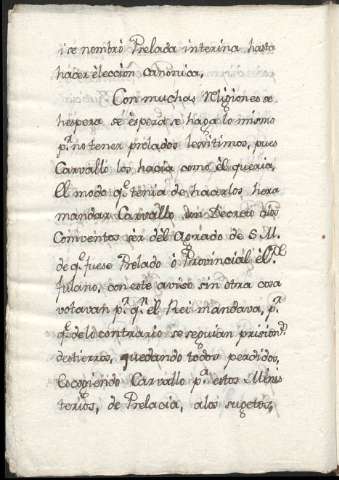 i se nombró Prelada interina hasta
hacer èlección canonica.
Con muchas Religiones se
hespera se èspera, se haga lo mismo
p.r no tener prelados lexitimos, pues
Carvallo los hacia como èl queria,
El modo q.e tenia de hacerlos hera
mandar Carvallo, un Decreto alos
Comventos sèr dèl Agrado de S. M.
de q.e fuese Prelado ò Provincial èl
fulano, con este aviso sin otra cosa
votavan p.r q.n el Rei mandava, p.r
q.e delo contrario se seguian prision.s
destierros, quedando todos perdidos,
Escogiendo Carvallo p.a estos Minis
terios, de Prelacia, alos sugetos,